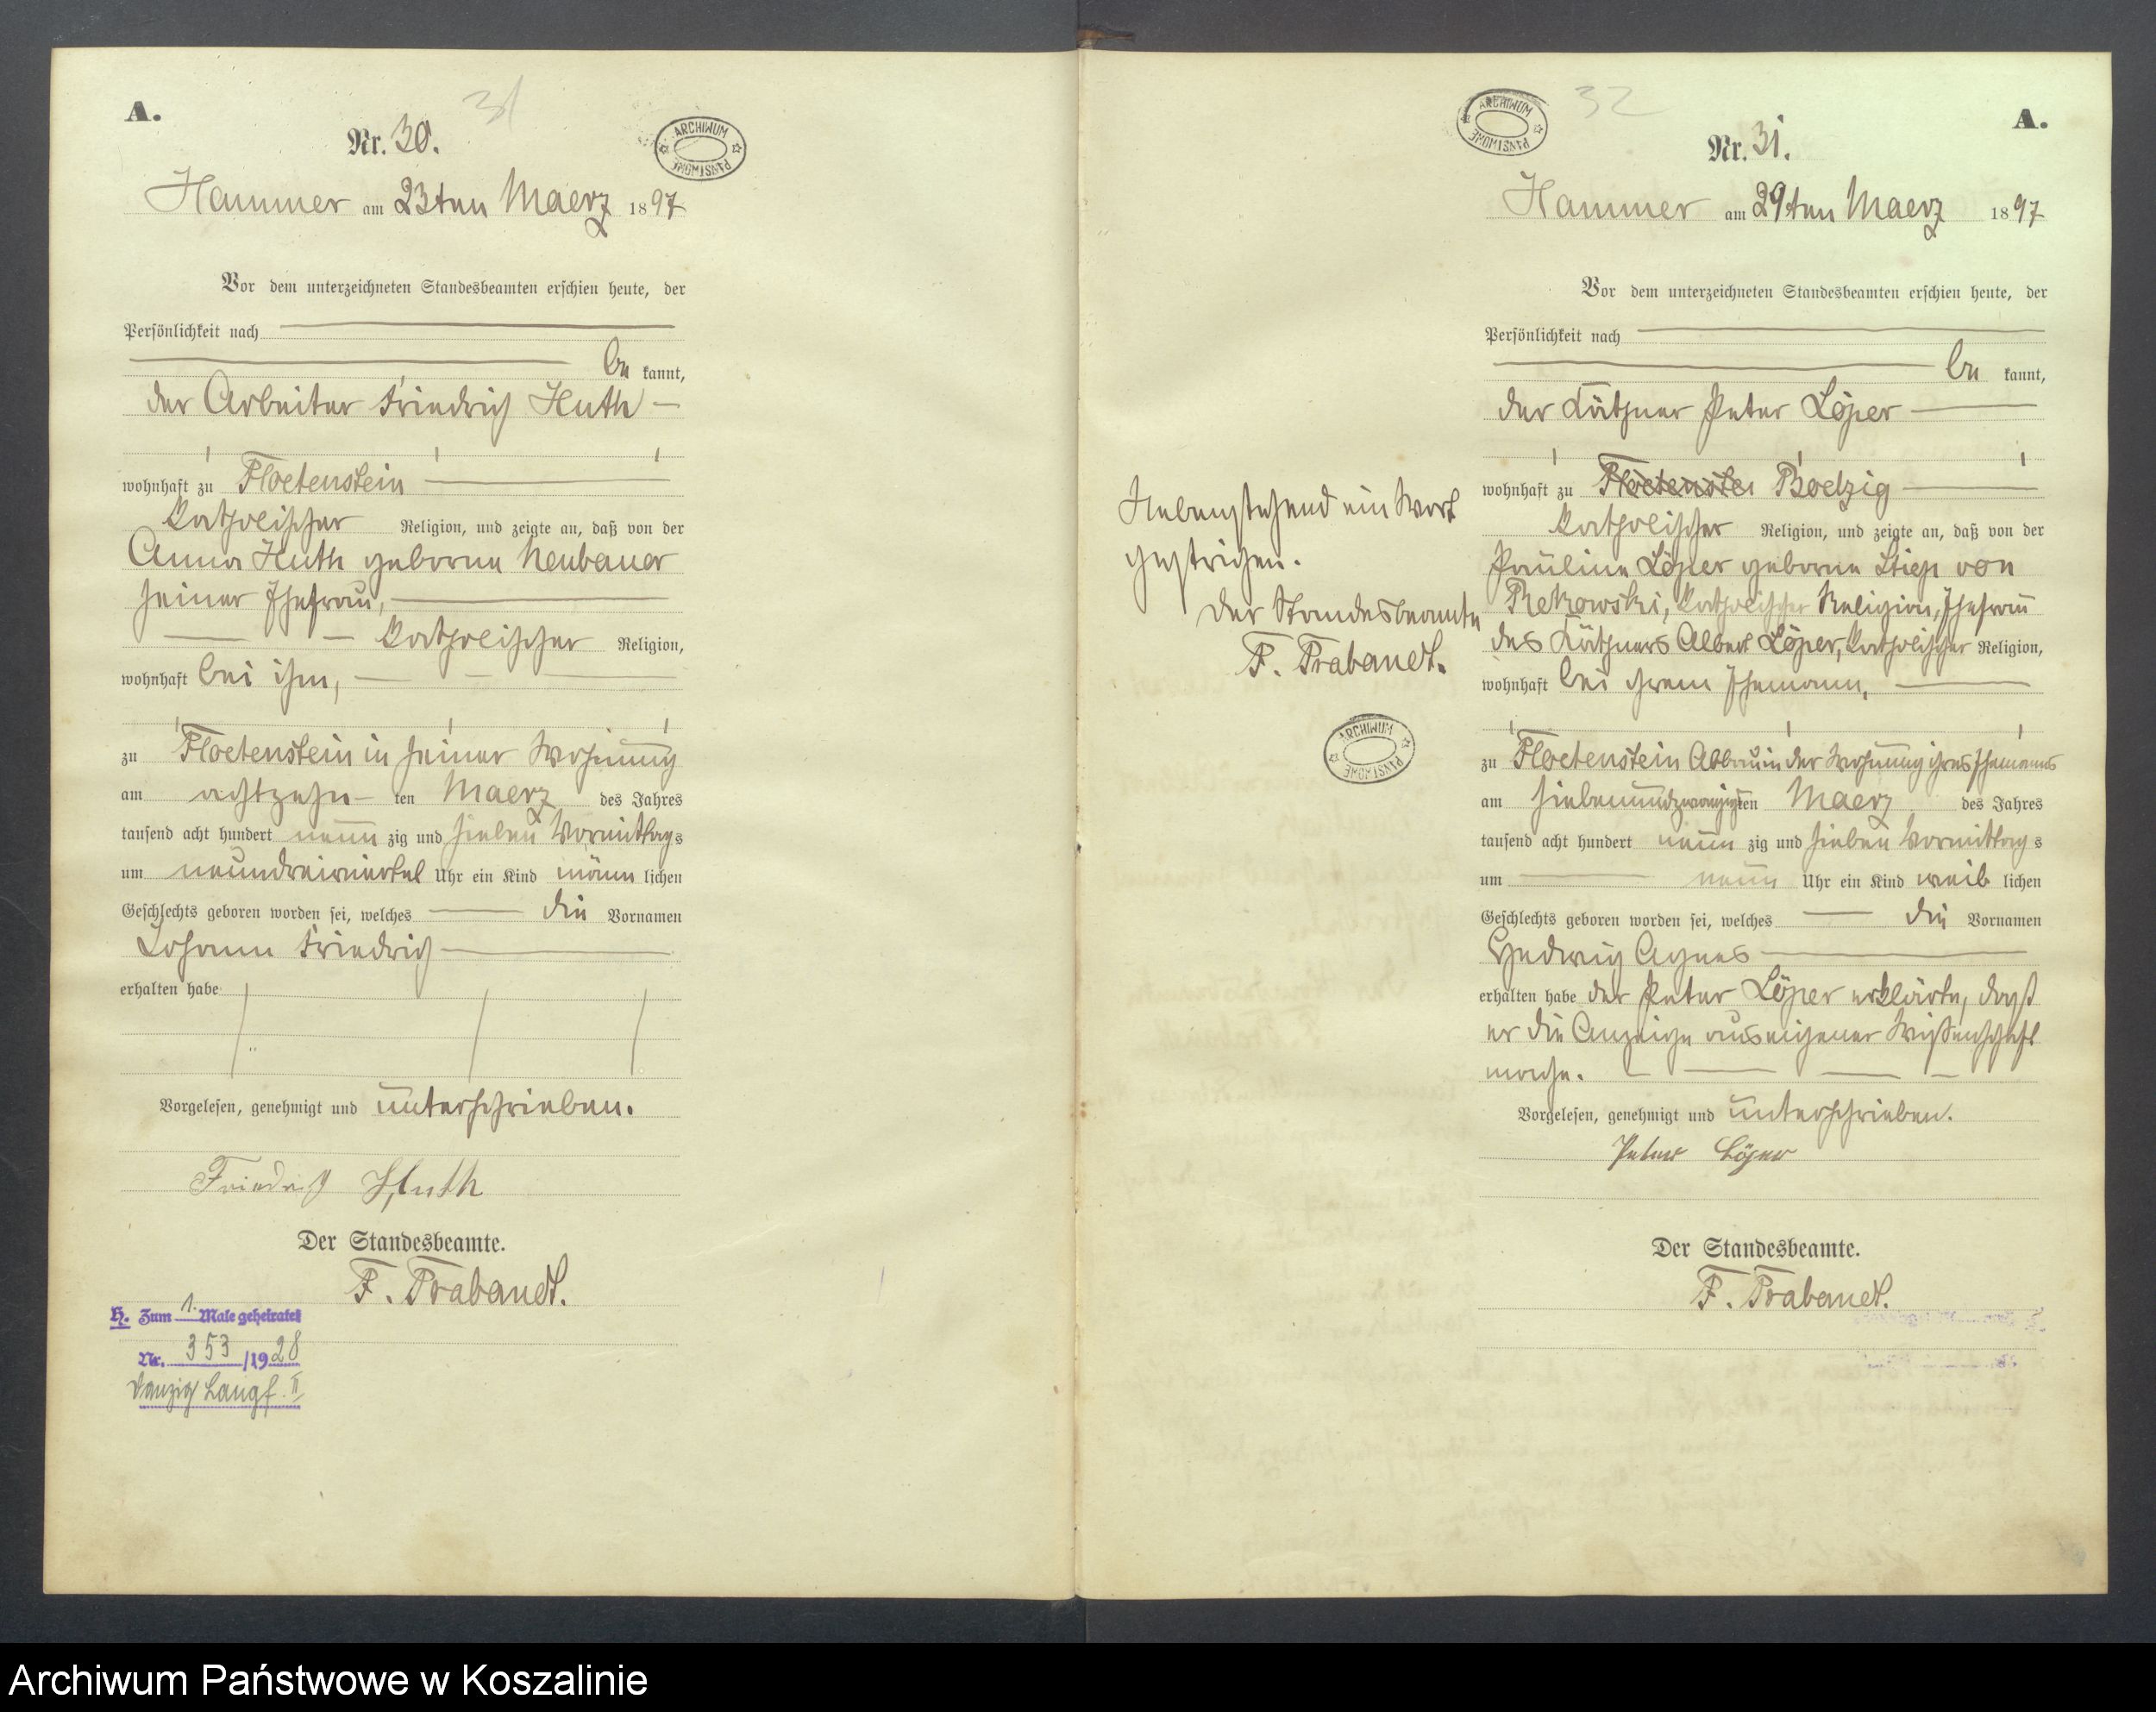 A.
31
Nr. 30.
ARCHIWUM PAŃSTWOWE
Hammer am 23ten Maerz 1897
Vor dem unterzeichneten Standesbeamten erschien heute, der
Persönlichkeit nach
be kannt,
der Arbeiter Friedrich Huth
wohnhaft zu Floetenstein
katholischer Religion, und zeigte an, daß von der
Anna Huth geborne Neubauer
seiner Ehefrau,
katholischer Religion,
wohnhaft bei ihm,
zu Floetenstein in seiner Wohnung
am achtzehn ten Maerz des Jahres
tausend acht hundert neun zig und sieben Vormittags
um neundreiviertel Uhr ein Kind männ lichen
Geschlechts geboren worden sei, welches die Vornamen
Johann Friedrich
erhalten habe
Vorgelesen, genehmigt und unterschrieben.
Friedrich Huth
Der Standesbeamte.
F. Prabandt.
H. Zum 1. Male geheiratet
Nr. 353 /1928
Danzig Langf. II
ARCHIWUM PAŃSTWOWE
32
A.
Nr. 31.
Hammer am 29ten Maerz 1897
Vor dem unterzeichneten Standesbeamten erschien heute, der
Persönlichkeit nach
be kannt,
der Käthner Peter Löper
wohnhaft zu Floetenstei
katholischer Religion, und zeigte an, daß von der
Pauline Löper geborne Stiep von
Rekowski, katholischer Religion, Ehefrau
des Käthners Albert Löper, katholischer Religion,
wohnhaft bei ihrem Ehemann,
zu Floetenstein Abbau in der Wohnung ihres Ehemannes
am siebenundzwanzigten Maerz des Jahres
tausend acht hundert neun zig und sieben Vormittag s
um neun Uhr ein Kind weib lichen
Geschlechts geboren worden sei, welches die Vornamen
Hedwig Agnes
erhalten habe der Peter Löper erklärte, daß
er die Anzeige aus eigener Wißenschaft
mache.
Vorgelesen, genehmigt und unterschrieben.
Peter Löper
Der Standesbeamte.
F. Prabandt.
Nebenstehend ein Wort
gestrichen.
Der Standesbeamte
F. Prabandt.
ARCHIWUM PAŃSTWOWE
Archiwum Państwowe w Koszalinie